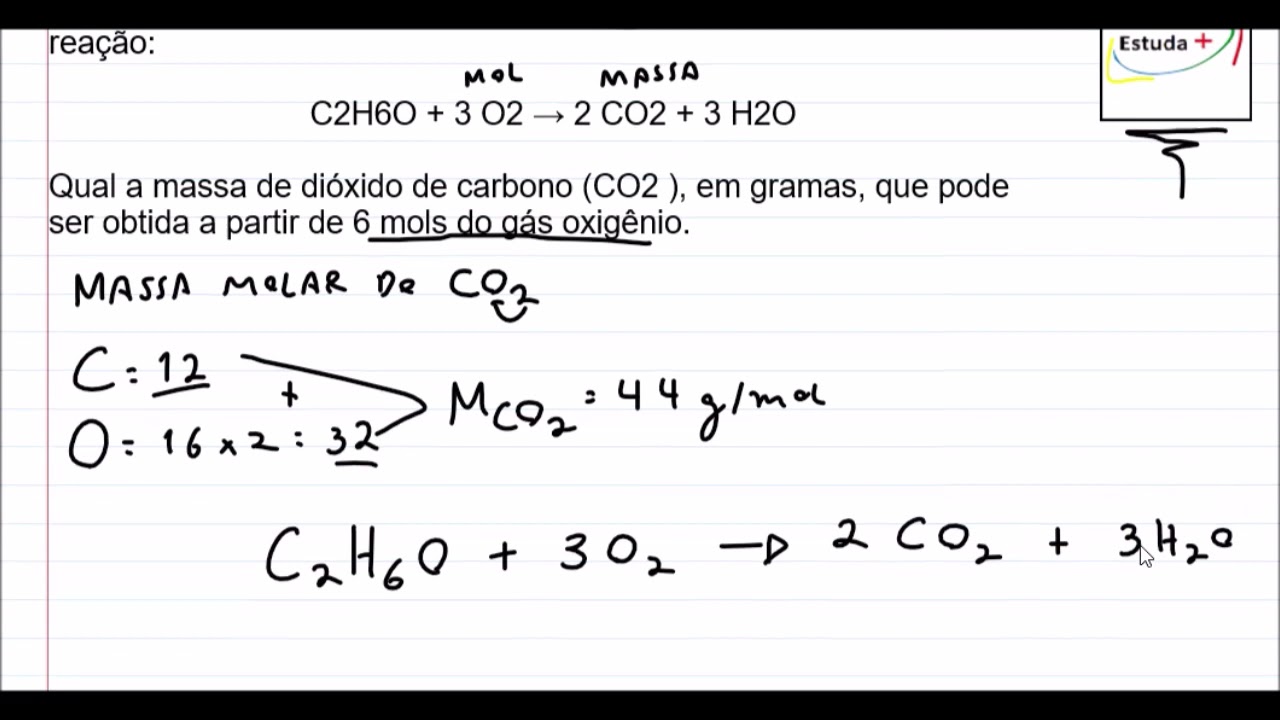 reação:
Estuda +
MOL MASSA
C2H6O + 3 O2 → 2 CO2 + 3 H2O
Qual a massa de dióxido de carbono (CO2 ), em gramas, que pode
ser obtida a partir de 6 mols do gás oxigênio.
MASSA MOLAR De CO2
C = 12
+
O = 16 x 2 = 32
MCO2 = 44 g/mol
C2H6O + 3 O2 → 2 CO2 + 3 H2O